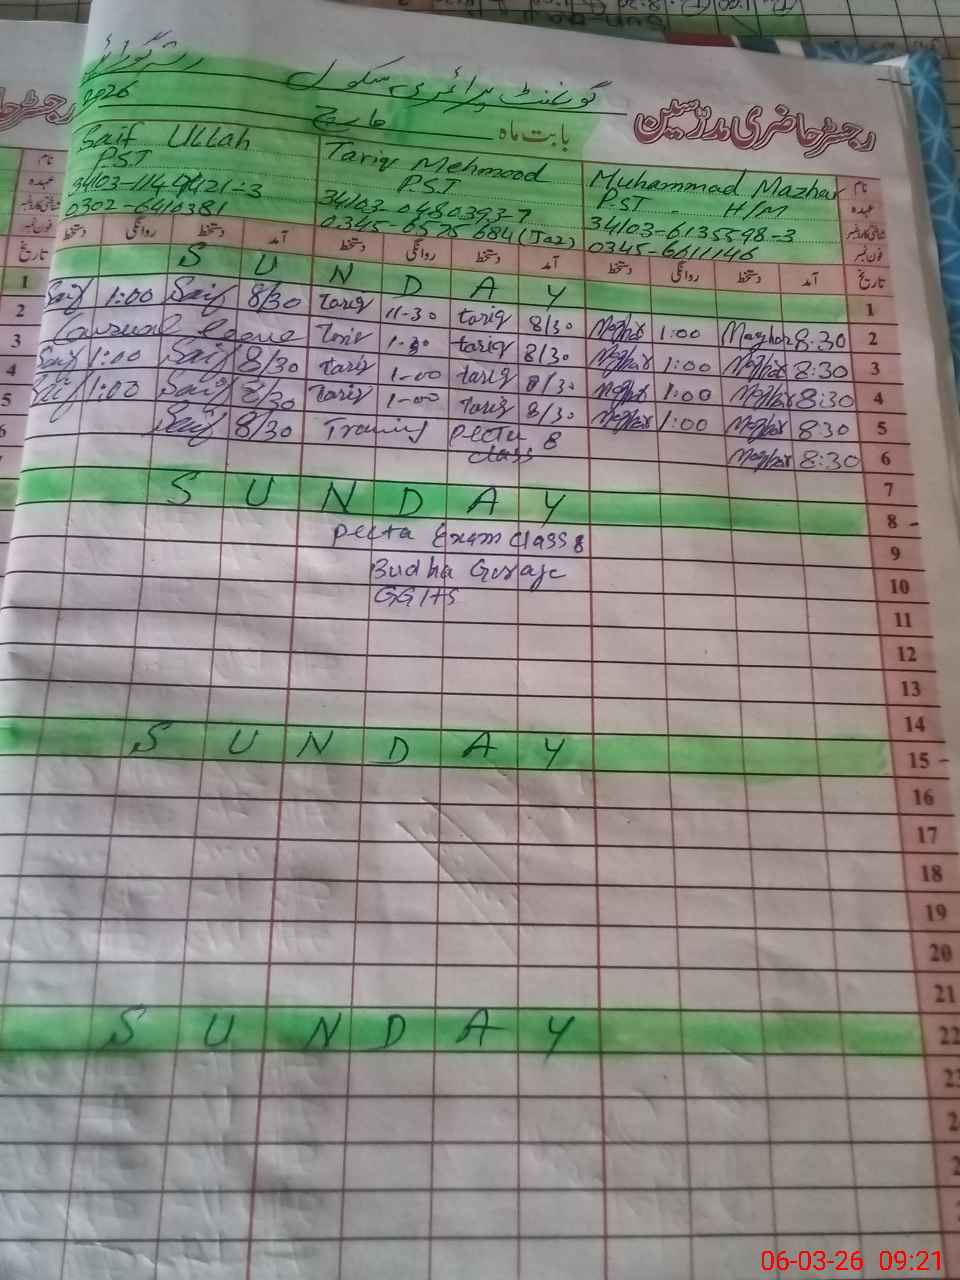 رجسٹر حاضری مدرسین
گورنمنٹ پرائمری سکول
بابت ماہ مارچ 2026
نام Muhammad Mazhar Tariq Mehmood Saif Ullah
عہدہ PST H/M PST PST
شناختی کارڈ نمبر 34103-6135598-3 34103-0480393-7 34103-1149421-3
فون نمبر 0345-6611146 0345-6575684 (Jaz) 0302-6410381
تاریخ آمد دستخط روانگی دستخط آمد دستخط روانگی دستخط آمد دستخط روانگی دستخط
1 SUNDAY
2 8:30 Mazhar 1:00 Mazhar 8/30 tariq 11-30 tariq 8/30 Saif 1:00 Saif
3 8:30 Mazhar 1:00 Mazhar 8/30 tariq 1-30 tariq Causual leave
4 8:30 Mazhar 1:00 Mazhar 8/30 tariq 1-00 tariq 8/30 Saif 1:00 Saif
5 8:30 Mazhar 1:00 Mazhar 8/30 tariq 1-00 tariq 8/30 Saif 1:00 Saif
6 8:30 Mazhar Training pecta 8 class 8/30 Saif
7
8 SUNDAY
9 pecta Exam class 8
10 Budha Goraya
11 GGHS
12
13
14
15 SUNDAY
16
17
18
19
20
21
22 SUNDAY
23
06-03-26 09:21